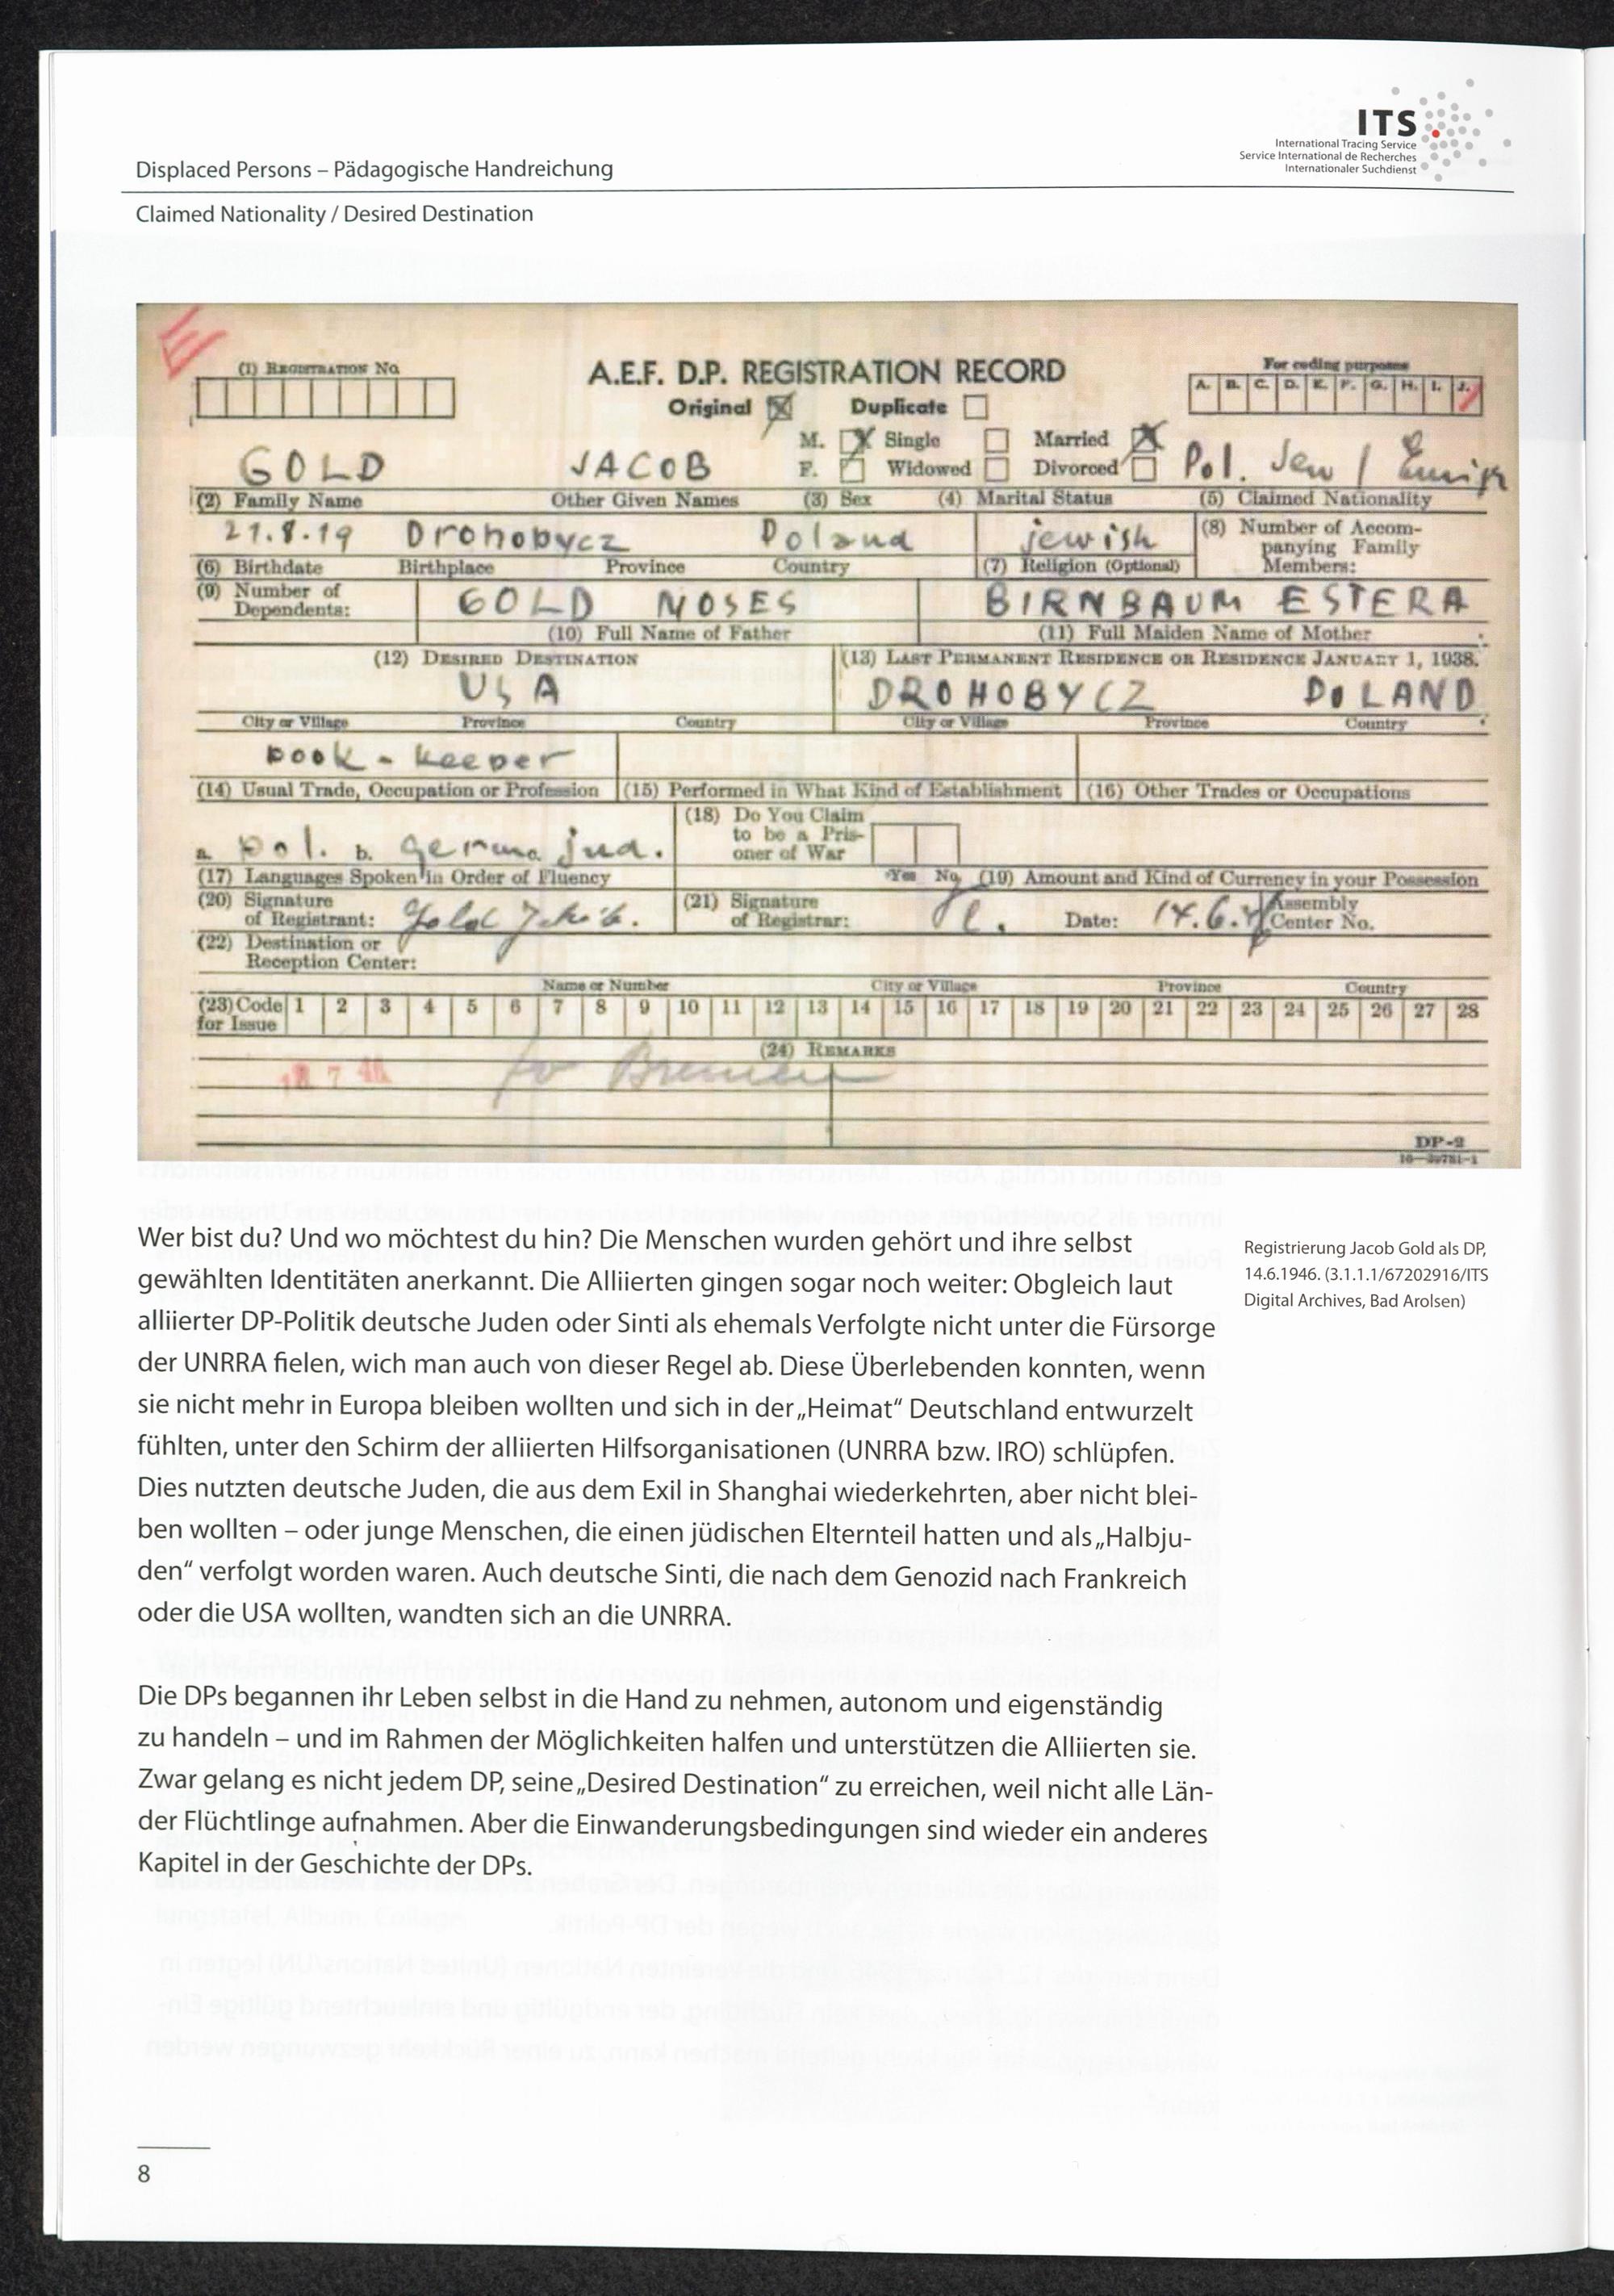 ITS
International Tracing Service
Service International de Recherches
Internationaler Suchdienst
Displaced Persons – Pädagogische Handreichung
Claimed Nationality / Desired Destination
E
(1) Registration No.
A.E.F. D.P. REGISTRATION RECORD
For coding purposes
A. B. C. D. E. F. G. H. I. J.
Original Duplicate
M. Single Married
GOLD JACOB F. Widowed Divorced Pol. Jew /
(2) Family Name Other Given Names (3) Sex (4) Marital Status (5) Claimed Nationality
21.8.19 Drohobycz Poland jewish (8) Number of Accom-
panying Family
(6) Birthdate Birthplace Province Country (7) Religion (Optional) Members:
(9) Number of
Dependents: GOLD MOSES BIRNBAUM ESTERA
(10) Full Name of Father (11) Full Maiden Name of Mother
(12) Desired Destination (13) Last Permanent Residence or Residence January 1, 1938.
USA DROHOBYCZ POLAND
City or Village Province Country City or Village Province Country
book - keeper
(14) Usual Trade, Occupation or Profession (15) Performed in What Kind of Establishment (16) Other Trades or Occupations
(18) Do You Claim
to be a Pris-
a. pol. b. jud. oner of War
(17) Languages Spoken in Order of Fluency Yes No (19) Amount and Kind of Currency in your Possession
(20) Signature (21) Signature Assembly
of Registrant: Gold of Registrar: Date: 14.6. Center No.
(22) Destination or
Reception Center:
Name or Number City or Village Province Country
(23) Code 1 2 3 4 5 6 7 8 9 10 11 12 13 14 15 16 17 18 19 20 21 22 23 24 25 26 27 28
for Issue
(24) Remarks
18 7 46 Bremen
DP-2
Wer bist du? Und wo möchtest du hin? Die Menschen wurden gehört und ihre selbst
gewählten Identitäten anerkannt. Die Alliierten gingen sogar noch weiter: Obgleich laut
alliierter DP-Politik deutsche Juden oder Sinti als ehemals Verfolgte nicht unter die Fürsorge
der UNRRA fielen, wich man auch von dieser Regel ab. Diese Überlebenden konnten, wenn
sie nicht mehr in Europa bleiben wollten und sich in der „Heimat“ Deutschland entwurzelt
fühlten, unter den Schirm der alliierten Hilfsorganisationen (UNRRA bzw. IRO) schlüpfen.
Dies nutzten deutsche Juden, die aus dem Exil in Shanghai wiederkehrten, aber nicht blei-
ben wollten – oder junge Menschen, die einen jüdischen Elternteil hatten und als „Halbju-
den“ verfolgt worden waren. Auch deutsche Sinti, die nach dem Genozid nach Frankreich
oder die USA wollten, wandten sich an die UNRRA.
Registrierung Jacob Gold als DP,
14.6.1946. (3.1.1.1/67202916/ITS
Digital Archives, Bad Arolsen)
Die DPs begannen ihr Leben selbst in die Hand zu nehmen, autonom und eigenständig
zu handeln – und im Rahmen der Möglichkeiten halfen und unterstützen die Alliierten sie.
Zwar gelang es nicht jedem DP, seine „Desired Destination“ zu erreichen, weil nicht alle Län-
der Flüchtlinge aufnahmen. Aber die Einwanderungsbedingungen sind wieder ein anderes
Kapitel in der Geschichte der DPs.
8